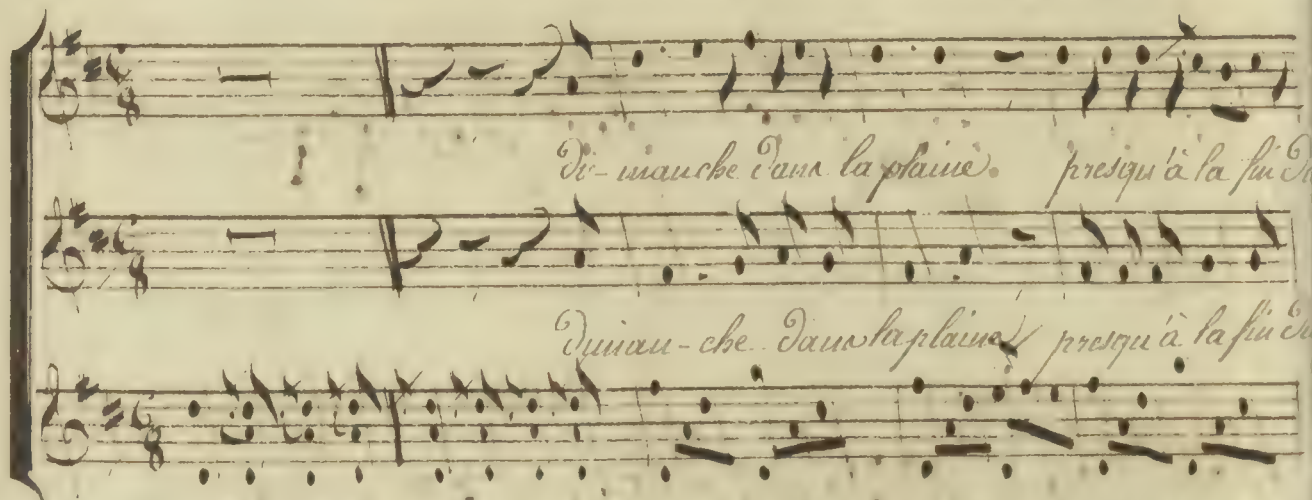 Di-manche dans la plaine. presqu'à la fin d
Diman-che dans la plaine presqu'à la fin d